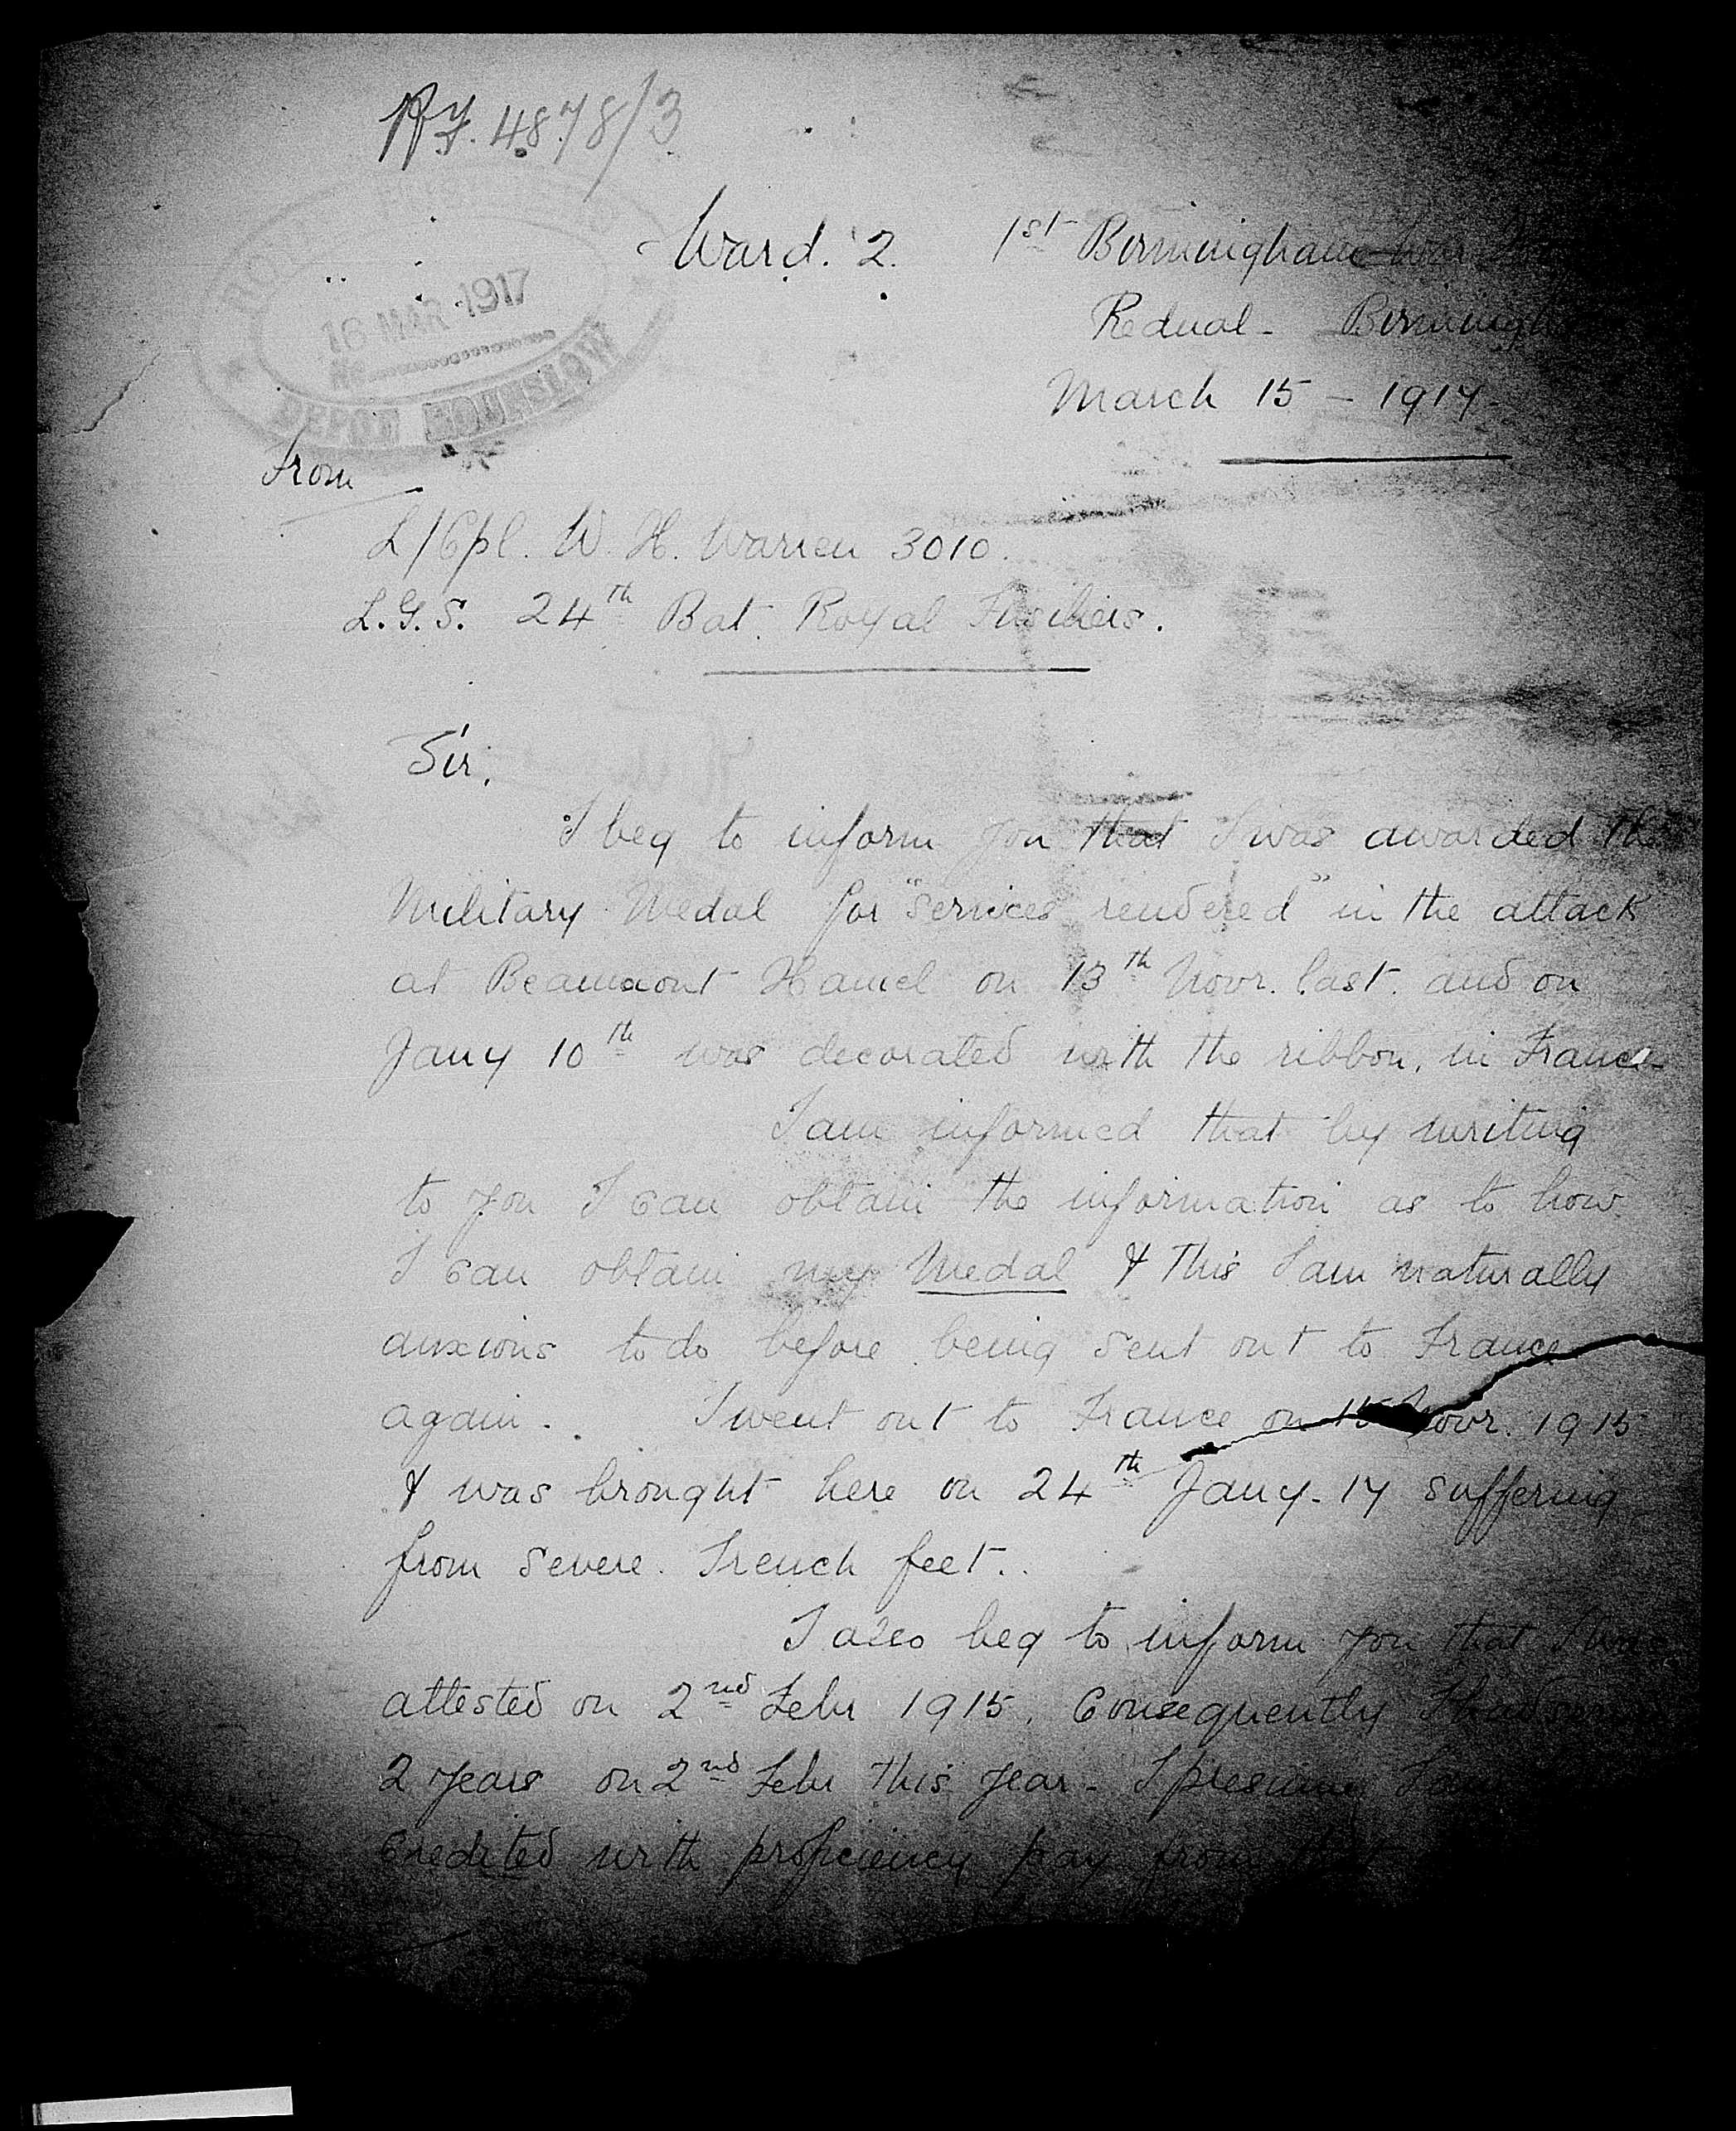 RF. 4878/3
ROYAL FUSILIERS
16 MAR 1917
No.
DEPOT HOUNSLOW
Ward. 2. 1st Birmingham War
Rednal - Birmingh
March 15 - 1917 -
From
L/Cpl. W. H. Warren 3010.
L.G.S. 24th Bat. Royal Fusiliers.
Sir,
I beg to inform you that I was awarded the
Military Medal for "services rendered" in the attack
at Beaumont Hamel on 13th Novr. last. and on
Jany 10th was decorated with the ribbon, in France -
I am informed that by writing
to you I can obtain the information as to how
I can obtain my Medal & this I am naturally
anxious to do before being sent out to France
again. I went out to France on 15 Novr. 1915
& was brought here on 24th Jany - 17 suffering
from severe. Trench feet..
I also beg to inform you that I
attested on 2nd Febr 1915. Consequently I had
2 years on 2nd Febr this year - I presume I
credited with proficiency pay from that